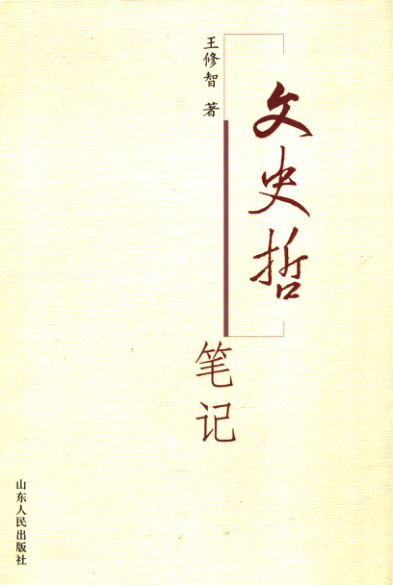 文史哲
笔记
王修智 著
山东人民出版社